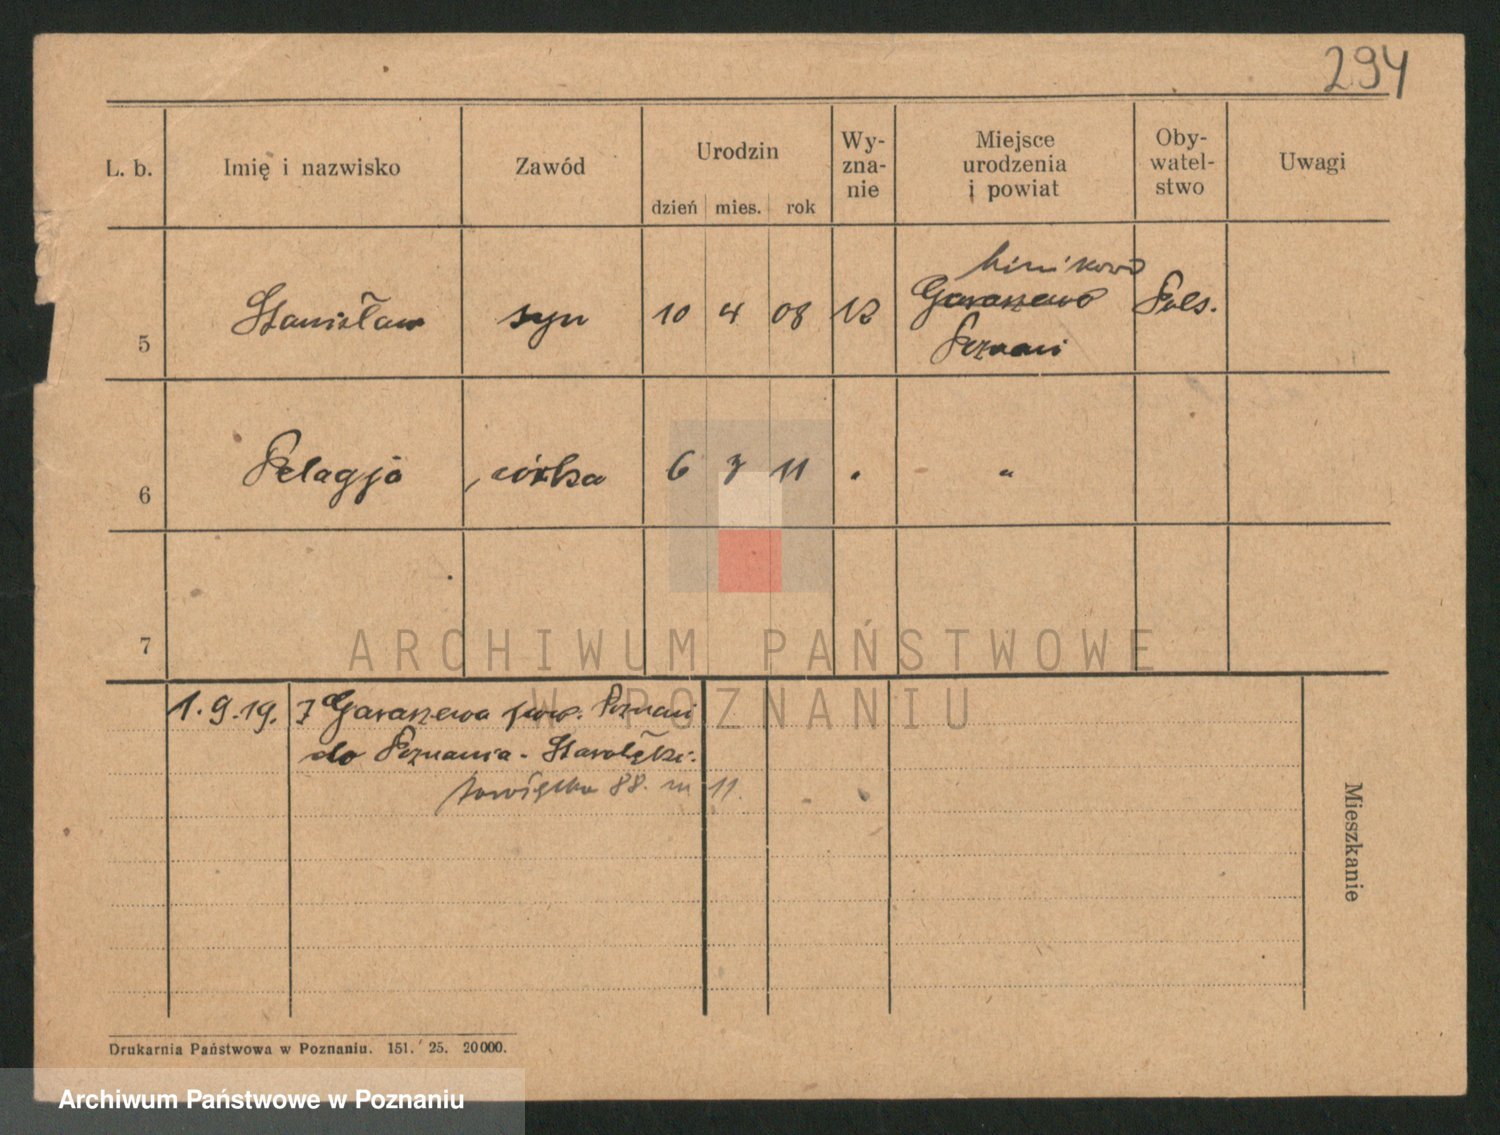 294
L. b. Imię i nazwisko Zawód Urodzin dzień mies. rok Wy-zna-nie Miejsce urodzenia i powiat Oby-watel-stwo Uwagi
Minikowo
5 Stanisław syn 10 4 08 K Garaszewo Pols.
Poznań
6 Pelagja córka 6 7 11 " "
7
ARCHIWUM PAŃSTWOWE
W POZNANIU
1.9.19. Z Garaszewa pow. Poznań
do Poznania - Starołęki.
88. m 11.
Mieszkanie
Drukarnia Państwowa w Poznaniu. 151. 25. 20000.
Archiwum Państwowe w Poznaniu